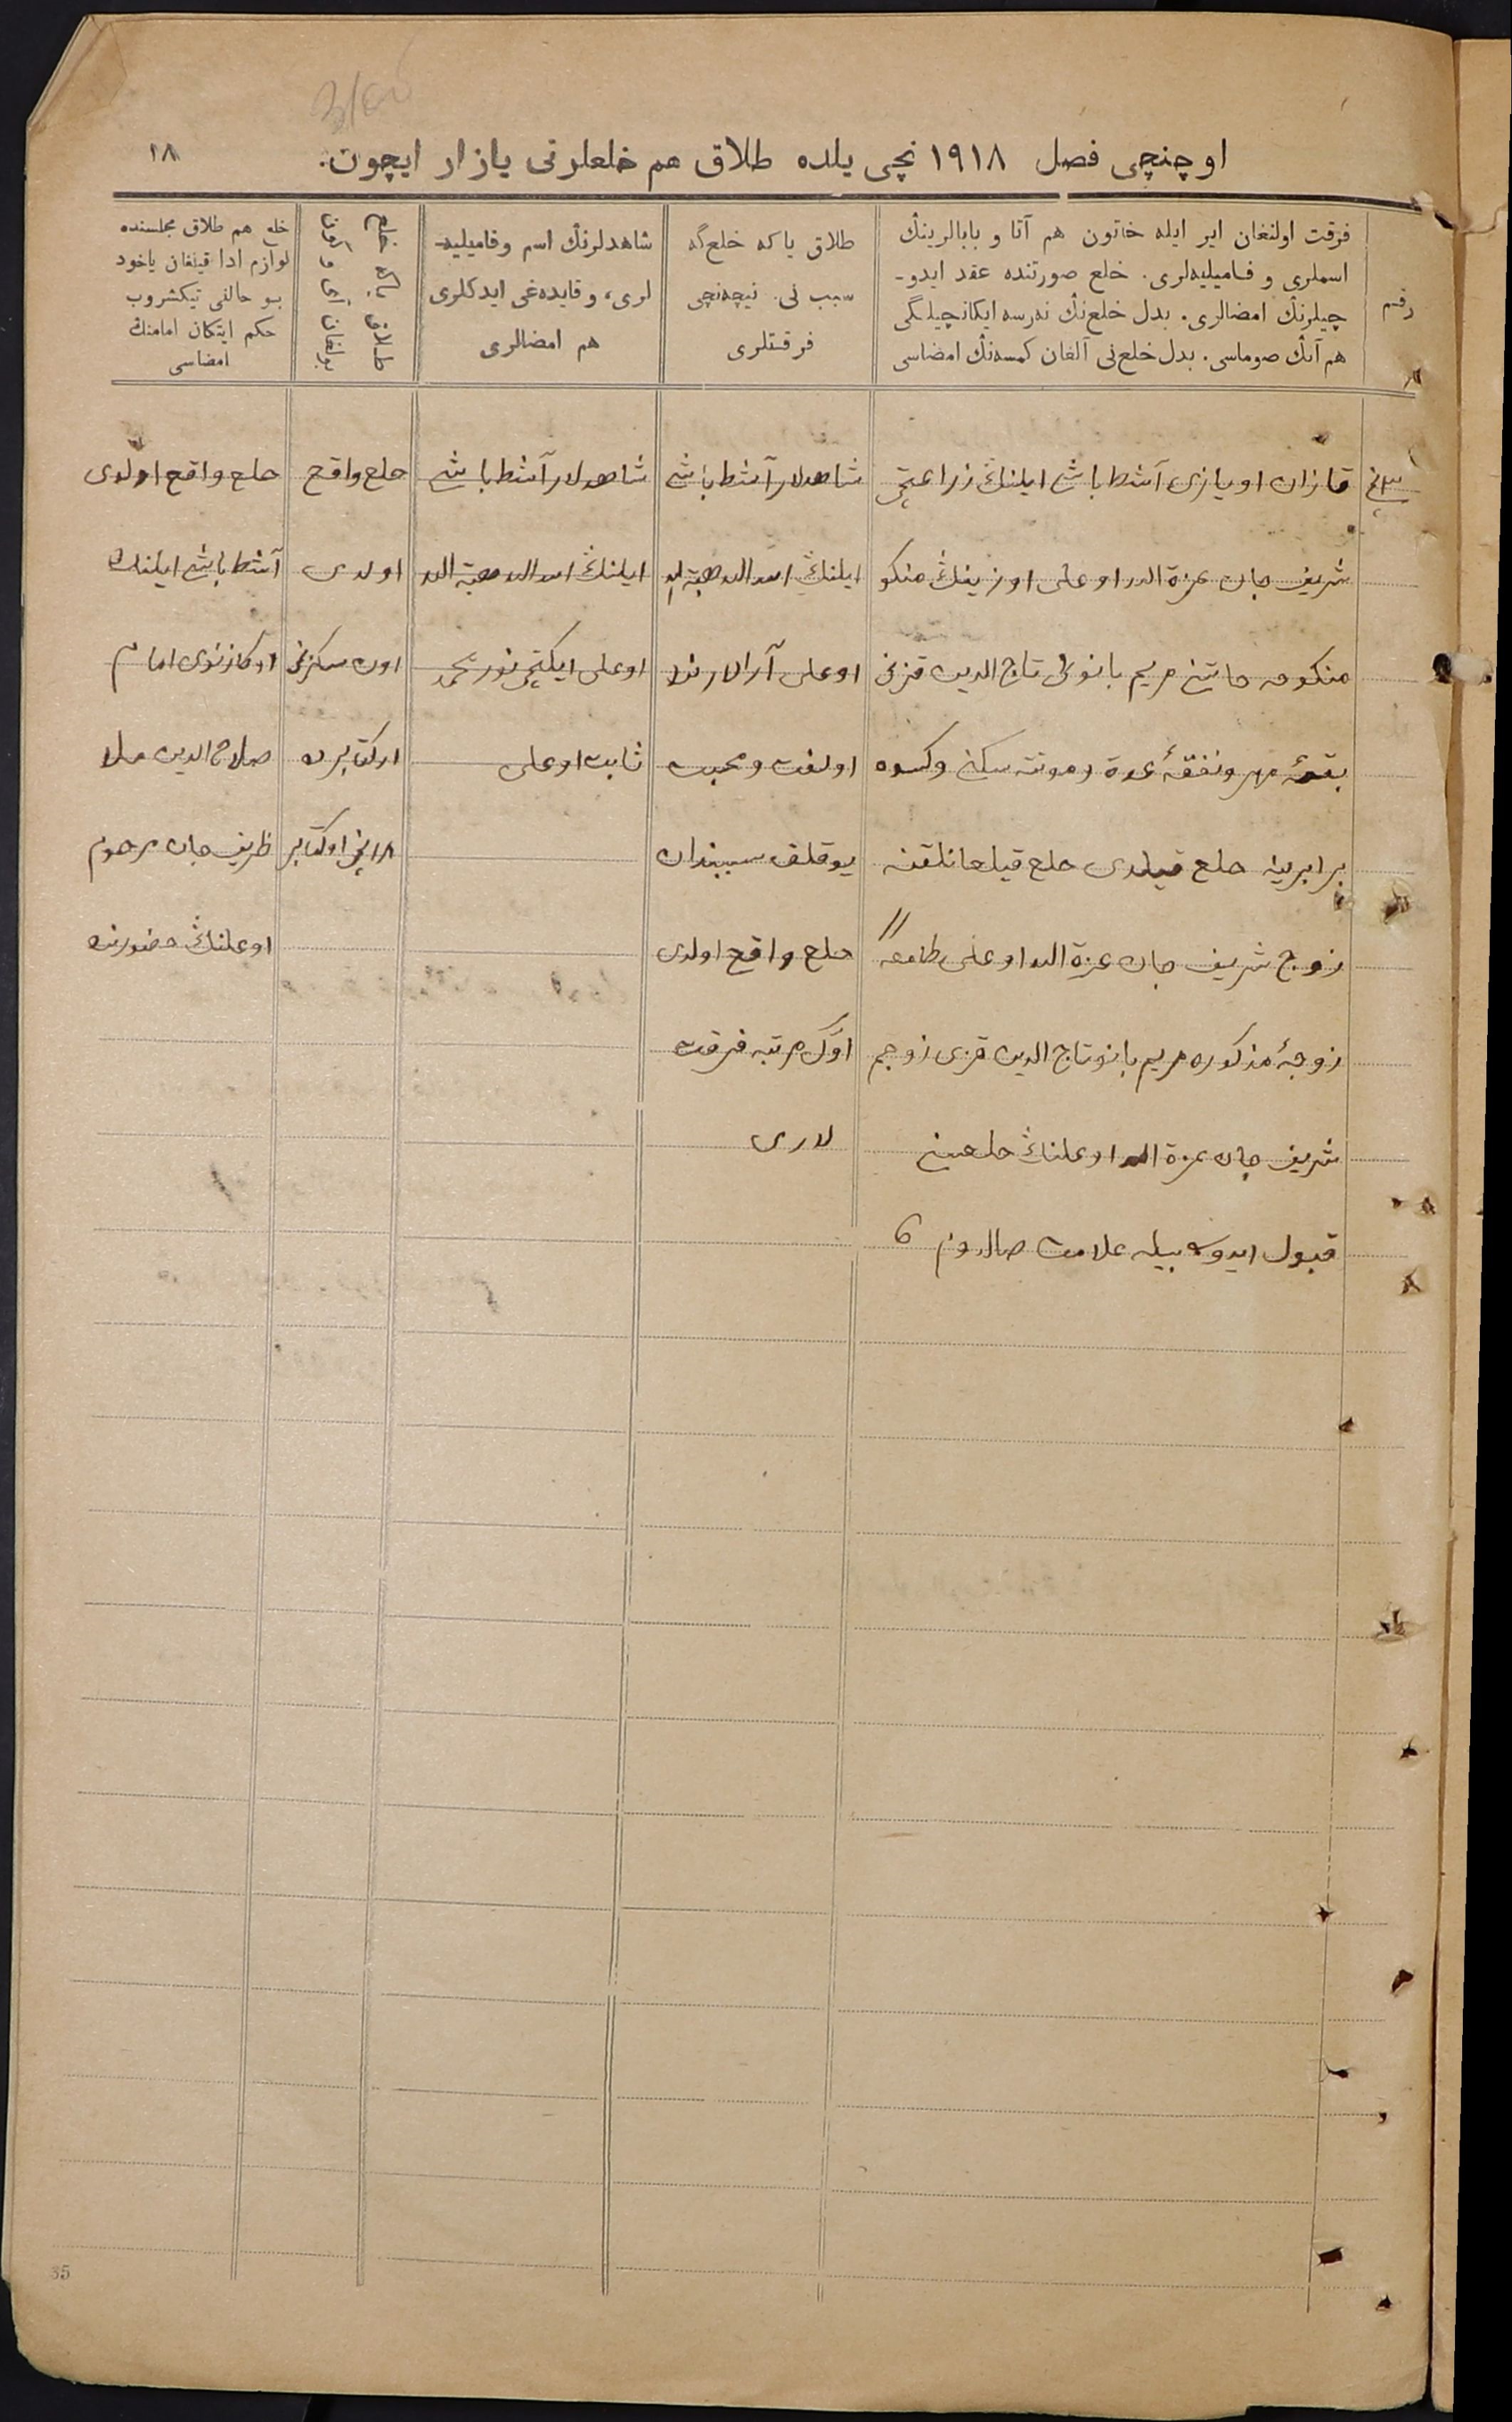 اوچنچی فصل ۱۹۱۸ نچی یلده طلاق هم خلعلرنی یازار ایچون.
۱۸
رقم
فرقت اولنغان ایر ایله خاتون هم آتا و بابالرینڭ
اسملری و فامیلیه‌لری. خلع صورتنده عقد ایدو-
چیلرنڭ امضالری. بدل خلع‌نڭ نه‌رسه ایکانچیلگی
هم آنڭ صوماسی. بدل خلع‌نی آلغان کمسه‌نڭ امضاسی
طلاق یا که خلع‌گه
سبب نی. نیچه‌نچی
فرقتلری
شاهدلرنڭ اسم وفامیلیه-
لری، وقایده‌غی ایدکلری
هم امضالری
طلاق یاکه خلع
بولغان آی و کون
خلع هم طلاق مجلسنده
لوازم ادا قیلغان یاخود
بو حالنی تیکشروب
حکم ایتکان امامنڭ
امضاسی
قازان اویازی آشطاباش ایلنڭ زراعتچی
شریف جان عزة الله اوغلی اوزینڭ منکو
منکوحه خاتنی مریم بانونی تاج الدین قزنی
بقیهٔ مهر ونفقهٔ عدة ومونته سکنی وکسوه
برابرینه خلع قیلدی خلع قیلغانلقنه
زوج شریف جان عزة الله اوغلی طامغه //
زوجهٔ مذکوره مریم بانو تاج الدین قزی زوجم
شریف جان عزة الله اوغلنڭ خلعینی
قبول ایدوم بیله علامت صالدوم
شاهدلار آشطاباش
ایلنڭ اسد الله هبة الله
اوغلی آرالارنده
اولفت ومحبت
یوقلق سببندان
خلع واقع اولدی
اوّل مرتبه فرقت
لاری
شاهدلار آشطاباش
ایلنڭ اسد الله هبة الله
اوغلی ایکنچی نورمحمد
ثابت اوغلی
خلع واقع
اولدی
اون سکزنچی
اوکتابرده
۱۸ نچی اوکتابر
خلع واقع اولدی
آشطاباش ایلنڭ
اوکازنوی امام
صلاح الدین ملا
ظریف جان مرحوم
اوغلنڭ حضورنده
35